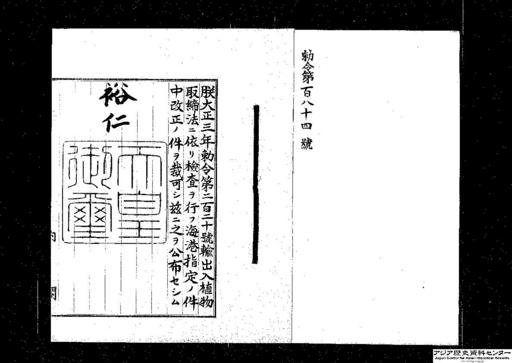 勅令第百八十四號
朕大正三年勅令第二百二十號輸出入植物
取締法ニ依リ檢査ヲ行フ海港指定ノ件
中改正ノ件ヲ裁可シ茲ニ之ヲ公布セシム
裕仁
天皇
御璽
内閣
アジア歴史資料センター
Japan Center for Asian Historical Records